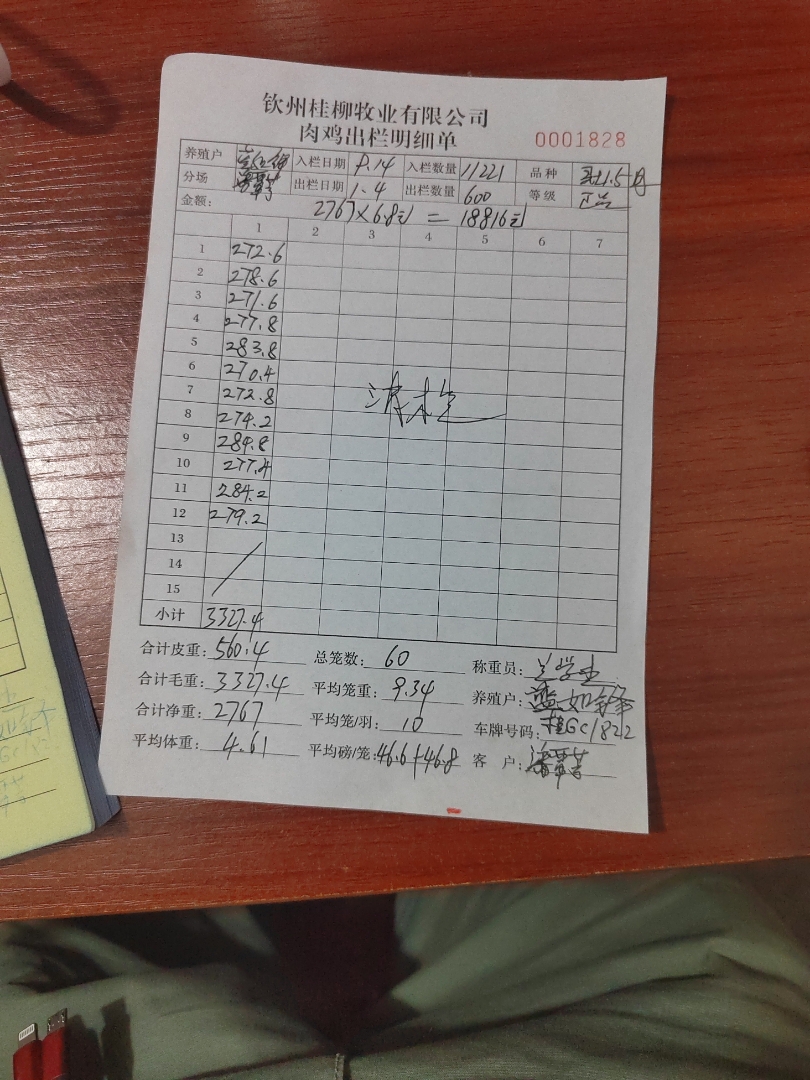 钦州桂柳牧业有限公司
肉鸡出栏明细单 0001828
养殖户 入栏日期 9.14 入栏数量 11221 品种
分场 出栏日期 1.4 出栏数量 600 等级 正品
金额: 2767×6.8元 = 18816元
1 2 3 4 5 6 7
1 272.6
2 278.6
3 271.6
4 277.8
5 283.8
6 270.4
7 272.8
8 274.2
9 284.8
10 277.4
11 284.2
12 279.2
13
14
15
小计 3327.4
合计皮重: 560.4 总笼数: 60 称重员:
合计毛重: 3327.4 平均笼重: 9.34 养殖户:
合计净重: 2767 平均笼/羽: 10 车牌号码: 桂GC1822
平均体重: 4.61 平均磅/笼: 46.6+46.8 客 户: